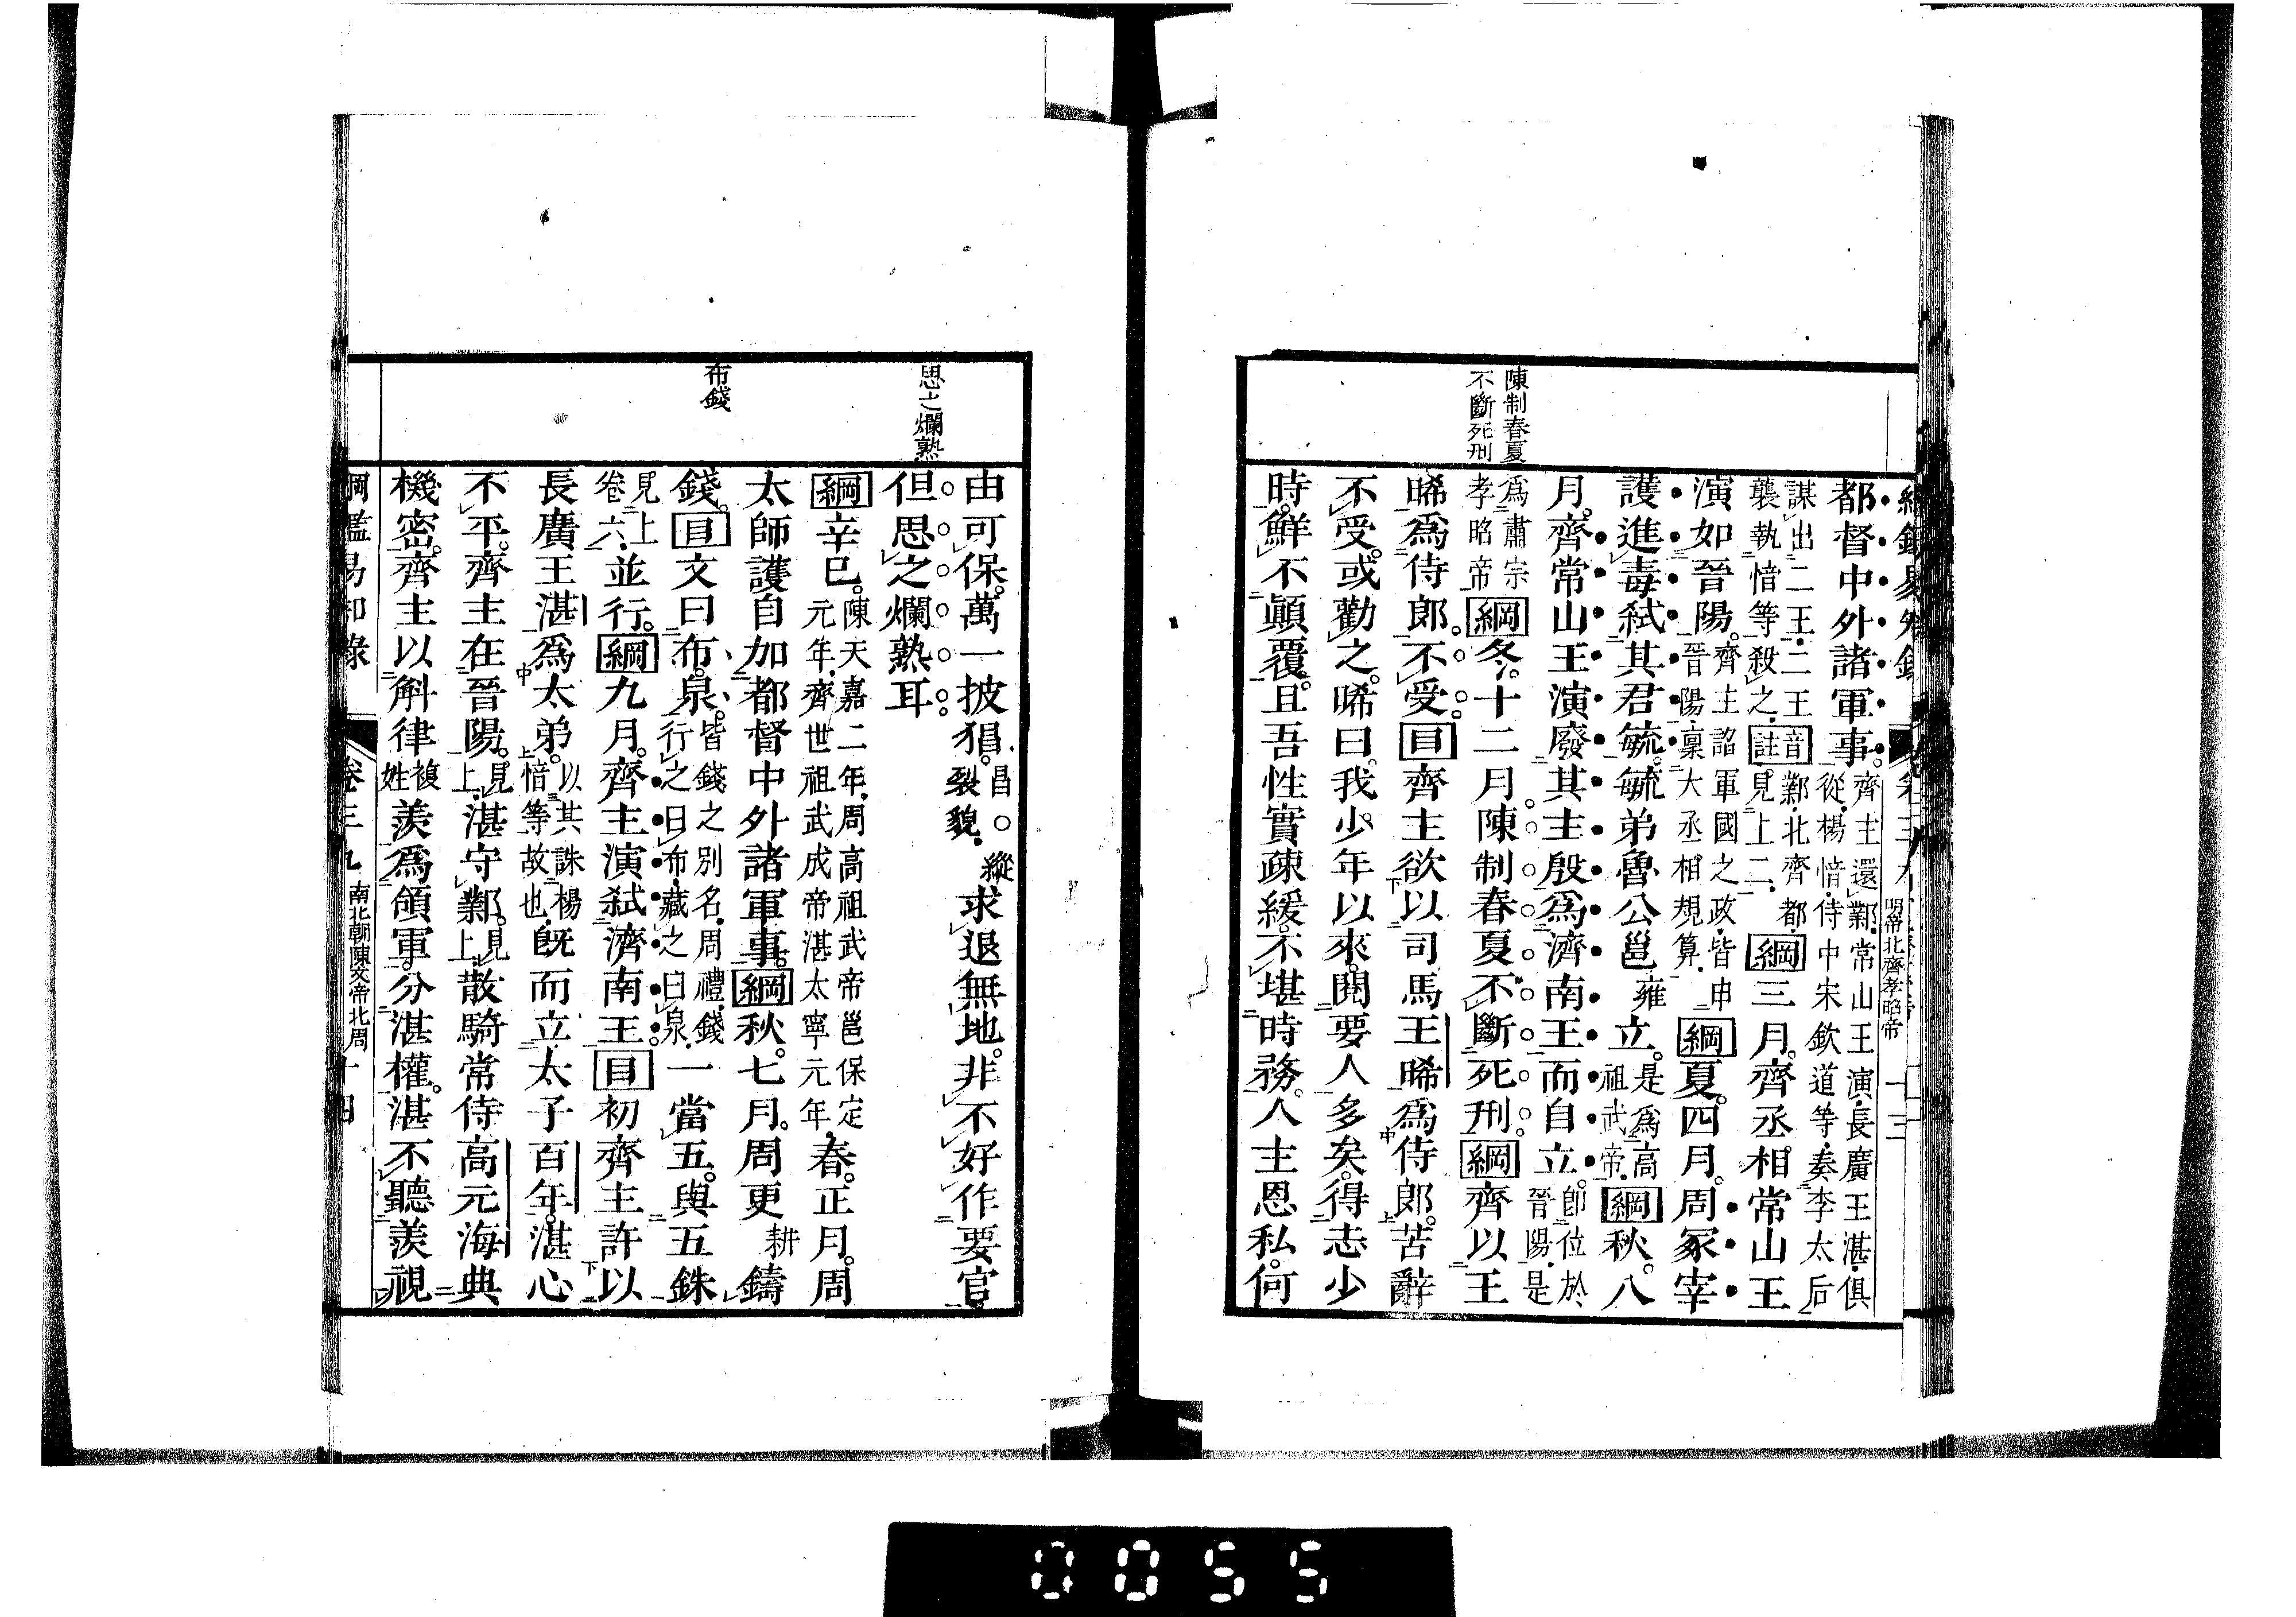 陳制春夏
不斷死刑
都督中外諸軍事。齊主還鄴。常山王演。長廣王湛。俱
從。楊愔。侍中宋欽道等。奏李太后
謀出二王。二王
襲執愔等殺之。音註鄴。北齊都。見上二。綱三月。齊丞相常山王
演如晉陽。齊主詔軍國之政。皆申
晉陽。稟大丞相規算。綱夏。四月。周冢宰
護進毒弑其君毓。毓弟魯公邕雍立。是爲高
祖武帝。綱秋。八
月。齊常山王演廢其主殷爲濟南王而自立。卽位於
晉陽。是
爲肅宗
孝昭帝綱冬。十二月陳制春夏不斷死刑。綱齊以王
晞爲侍郎。不受。目齊主欲以司馬王晞爲侍郎。苦辭
不受。或勸之。晞曰。我少年以來。閱要人多矣。得志少
時。鮮不顚覆。且吾性實疎緩。不堪時務。人主恩私。何
思之爛熟
布錢
由可保。萬一披猖。昌。裂貌。縱求退無地。非不好作要官。
但思之爛熟耳
綱辛巳。陳天嘉二年。周高祖武帝邕保定
元年。齊世祖武成帝湛太寧元年。春。正月。周
太師護自加都督中外諸軍事。綱秋。七月。周更耕鑄
錢。目文曰布。泉。皆錢之別名。周禮。錢
行之曰布。藏之曰泉。一當五。與五銖
見上
卷六。並行。綱九月。齊主演弑濟南王。目初齊主許以
長廣王湛爲太弟。以其誅楊
愔等故也。旣而立太子百年。湛心
不平。齊主在晉陽。見
上。湛守鄴。見
上。散騎常侍高元海典
機密。齊主以斛律複
姓羨爲領軍。分湛權。湛不聽羨視
綱鑑易知錄 卷三九 南北朝陳文帝北周 十四
0055